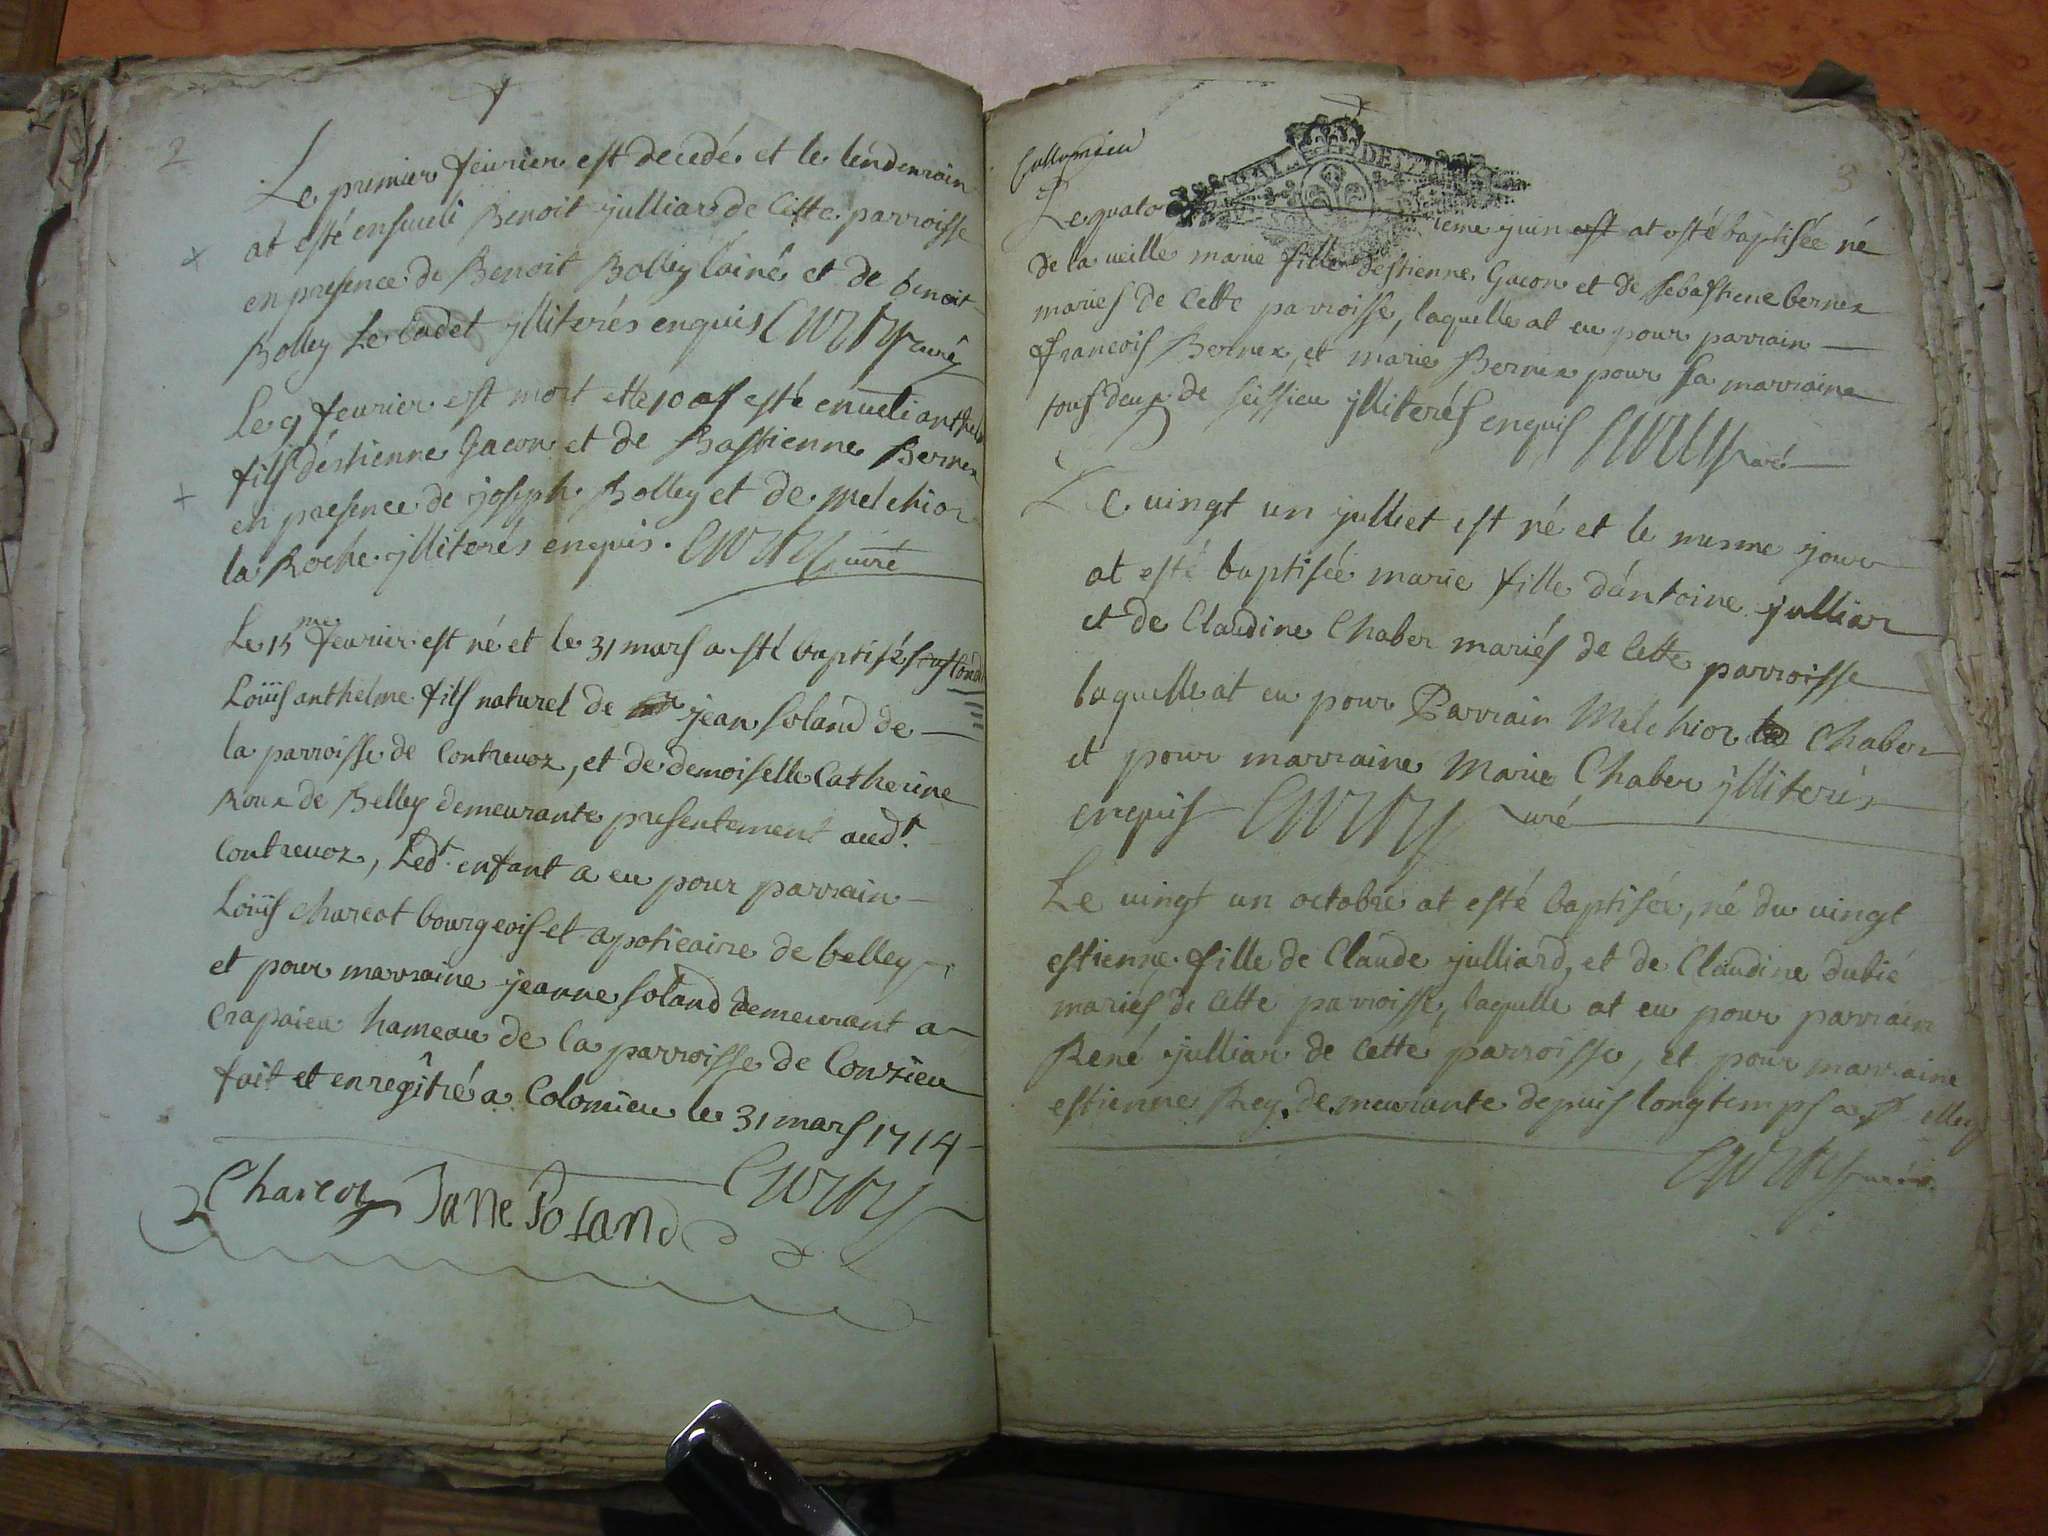 2
Le premier fevrier est decedé et le lendemain
at esté enseveli Benoit julliar de cette parroisse
en presence de Benoit Bolley lainé et de benoit
Bolley Le Cadet illiterés enquis curé
le 9 fevrier est mort et le 10 at esté enveli
fils déstienne Gacon et de Bastienne Bernex
en presence de joseph Bolley et de melchior
la Roche illiterés enquis. curé
Le 15me fevrier est né et le 31 mars a esté baptisé
Loüis anthelme fils naturel de jean soland de
la parroisse de Contrevoz, et de demoiselle Catherine
Roux de Belley demeurante presentement aud.t
Contrevoz, Led.t enfant a eu pour parrain
Loüis charcot bourgeois et apoticaire de belley
et pour marraine jeanne soland demeurant a
Crapaieu hameau de la parroisse de Conzieu
fait et enregîtré a Colomieu le 31 mars 1714
Charcot Jane Soland
3
Collomieu
GAL DE
Le quato ieme juin est at esté baptisée né
de la veille marie fille destienne Gacon et de sebastiene bernex
mariés de cette parroisse, laquelle at eu pour parrain
francois Bernex, et marie Bernex pour sa marraine
tous deux de seissieu illiterés enquis curé
Le vingt un julliet est né et le mesme jour
at esté baptisée marie fille dántoine julliar
et de Claudine Chaber mariés de cette parroisse
laquelle at eu pour Parrain Melchior Chaber
et pour marraine Marie Chaber illiterés
enquis curé
Le vingt un octobre at esté baptisée, né du vingt
estienne fille de Claude julliard, et de Claudine dubié
mariés de cette parroisse, laquelle at eu pour parrain
René julliar de cette parroisse, et pour marraine
estienne Rey demeurante depuis longtemps a
curé